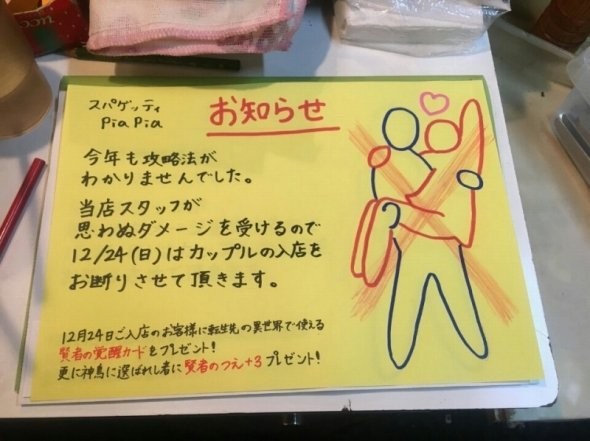 スパゲッティ
Pia Pia
お知らせ
今年も攻略法が
わかりませんでした。
当店スタッフが
思わぬダメージを受けるので
12/24(日)はカップルの入店を
お断りさせて頂きます。
12月24日ご入店のお客様に転生先の異世界で使える
賢者の覚醒カードをプレゼント!
更に神鳥に選ばれし者に賢者のつえ+3プレゼント!